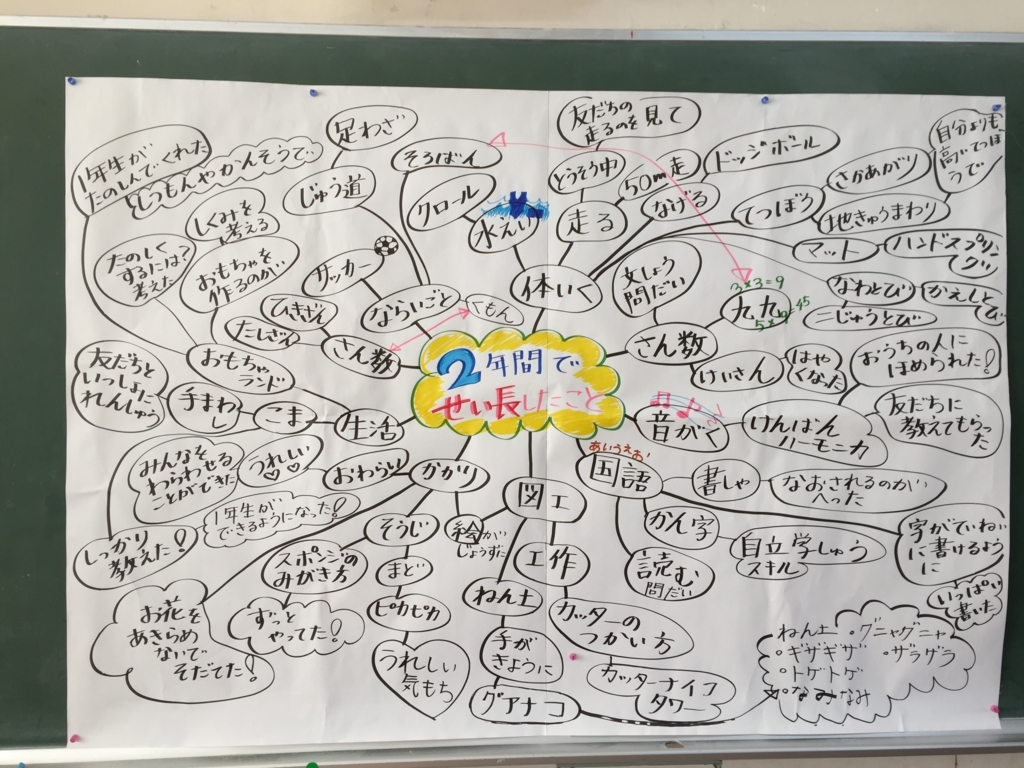 2年間で
せい長したこと
体いく
水えい
クロール
走る
とうそう中
友だちの
走るのを見て
50m走
なげる
ドッジボール
てつぼう
さかあがり
地きゅうまわり
自分よりも
高いてつぼ
うで
マット
ハンドスプリ
ング
なわとび
かえしと
び
二じゅうとび
さん数
文しょう
問だい
九九
3×3=9
けいさん
はや
くなった
音がく
けんばん
ハーモニカ
おうちの人に
ほめられた!
友だちに
教えてもらった
国語
あいうえお!
書しゃ
なおされるのが
へった
字がていねい
に書けるよう
に
いっぱい
書いた
かん字
自立学しゅう
スキル
読む
問だい
図工
絵がい
じょうずに
工作
カッターの
つかい方
カッターナイフ
タワー
ねん土
手が
きように
グアナコ
ねん土 ・グニャグニャ
・ギザギザ ・ザラザラ
・トゲトゲ
なみなみ
かかり
おわらい
うれしい
みんなを
わらわせる
ことができた
そうじ
まど
ピカピカ
うれしい
気もち
スポンジの
みがき方
ずっと
やってた!
お花を
あきらめ
ないで
そだてた!
生活
こま
手まわ
し
友だちと
いっしょに
れんしゅう
しっかり
教えた!
1年生が
できるようになった!
おもちゃ
ランド
おもちゃを
作るのがい
しくみを
考える
たのしく
するには?
考えた
1年生が
たのしんでくれた
しつもんやかんそうで
さん数
たしざん
ひきざん
ならいごと
くもん
サッカー
じゅう道
足わざ
そろばん